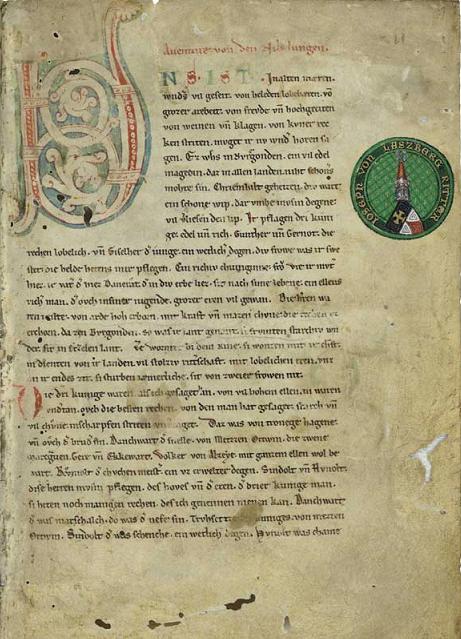 Auenture von den Nibelungen.
VNS. IST. In alten mæren
wnds vil geseit. von heleden lobebæren. vō
grozer arebeit. von frevde vn̄ hochgeciten
von weinen vn̄ klagen. von kuner rec
ken striten. mvget ir nv wnder horen sa
gen. Ez whs in Bvrgonden. ein vil edel
magedin. daz in allen landen niht schoners
mohte sin. Chriemhilt geheizen. div wart
ein schone wip. dar vmbe mvsin degene
vil vliesen den lip. Ir pflagen dri kuni
ge edel vn̄ rich. Gunther vn̄ Gernot. die
rechen lobelich. vn̄ Giselher d̓ iunge. ein wetlich degen. div frowe was ir swe
ster die helde heten ir pflegen. Ein richiv chuniginne frō vte ir mvt̓
hiez. ir vat̓ d̓ hiez Dancrat. d̓ in div erbe liez. sit nach sime lebene. ein ellens
rich man. d̓ ovch in siner iugende. grozer eren vil gewan. Die hrēn wa
ren milte. von arde hoh erborn. mit kraft vnmazen chune. die rechen vz
erchorn. da zen Bvrgonden. so was ir lant genant. si frvmten starchiv wn
der. sit in Etzelen lant. Ze wormz bi dem Rine. si wonten mit ir chraft.
in dienten von ir landen. vil stolziv ritschaft. mit lobelichen eren. vnz
an ir endes zit. si sturben iæmerliche. sit von zweier frowen nit.
Die dri kunige waren. als ich gesaget han. von vil hohem ellen. in waren
vndtan. ovch die besten rechen. von den man hat gesaget. starch vn̄
vil chvne. in scharpfen striten vnverzaget. Daz was von tronege hagene
vn̄ ovch d̓ brud̓ sin. Danchwart d̓ snelle. von Metzen Ortwin. die zwene
marcgrauen. Gere vn̄ Ekkewart. Volker von Alzeye. mit ganzem ellen wol be
wart. Rvmolt d̓ chvchen meist̓. ein vz erwelter degen. Sindolt vn̄ Hvnolt.
dise herren mvsin pflegen. des hoves vn̄ d̓ eren. d̓ drier kunige man.
si heten noch manigen rechen. des ich genennen niene kan. Danchwart
d̓ was marschalch. do was d̓ nefe sin. Trvhsetze des kuniges. von metzen
Ortwin. Sindolt d̓ was schenche. ein wetlich degen. Hvnolt was chame
IOSEPH VON LASZBERG RITTER